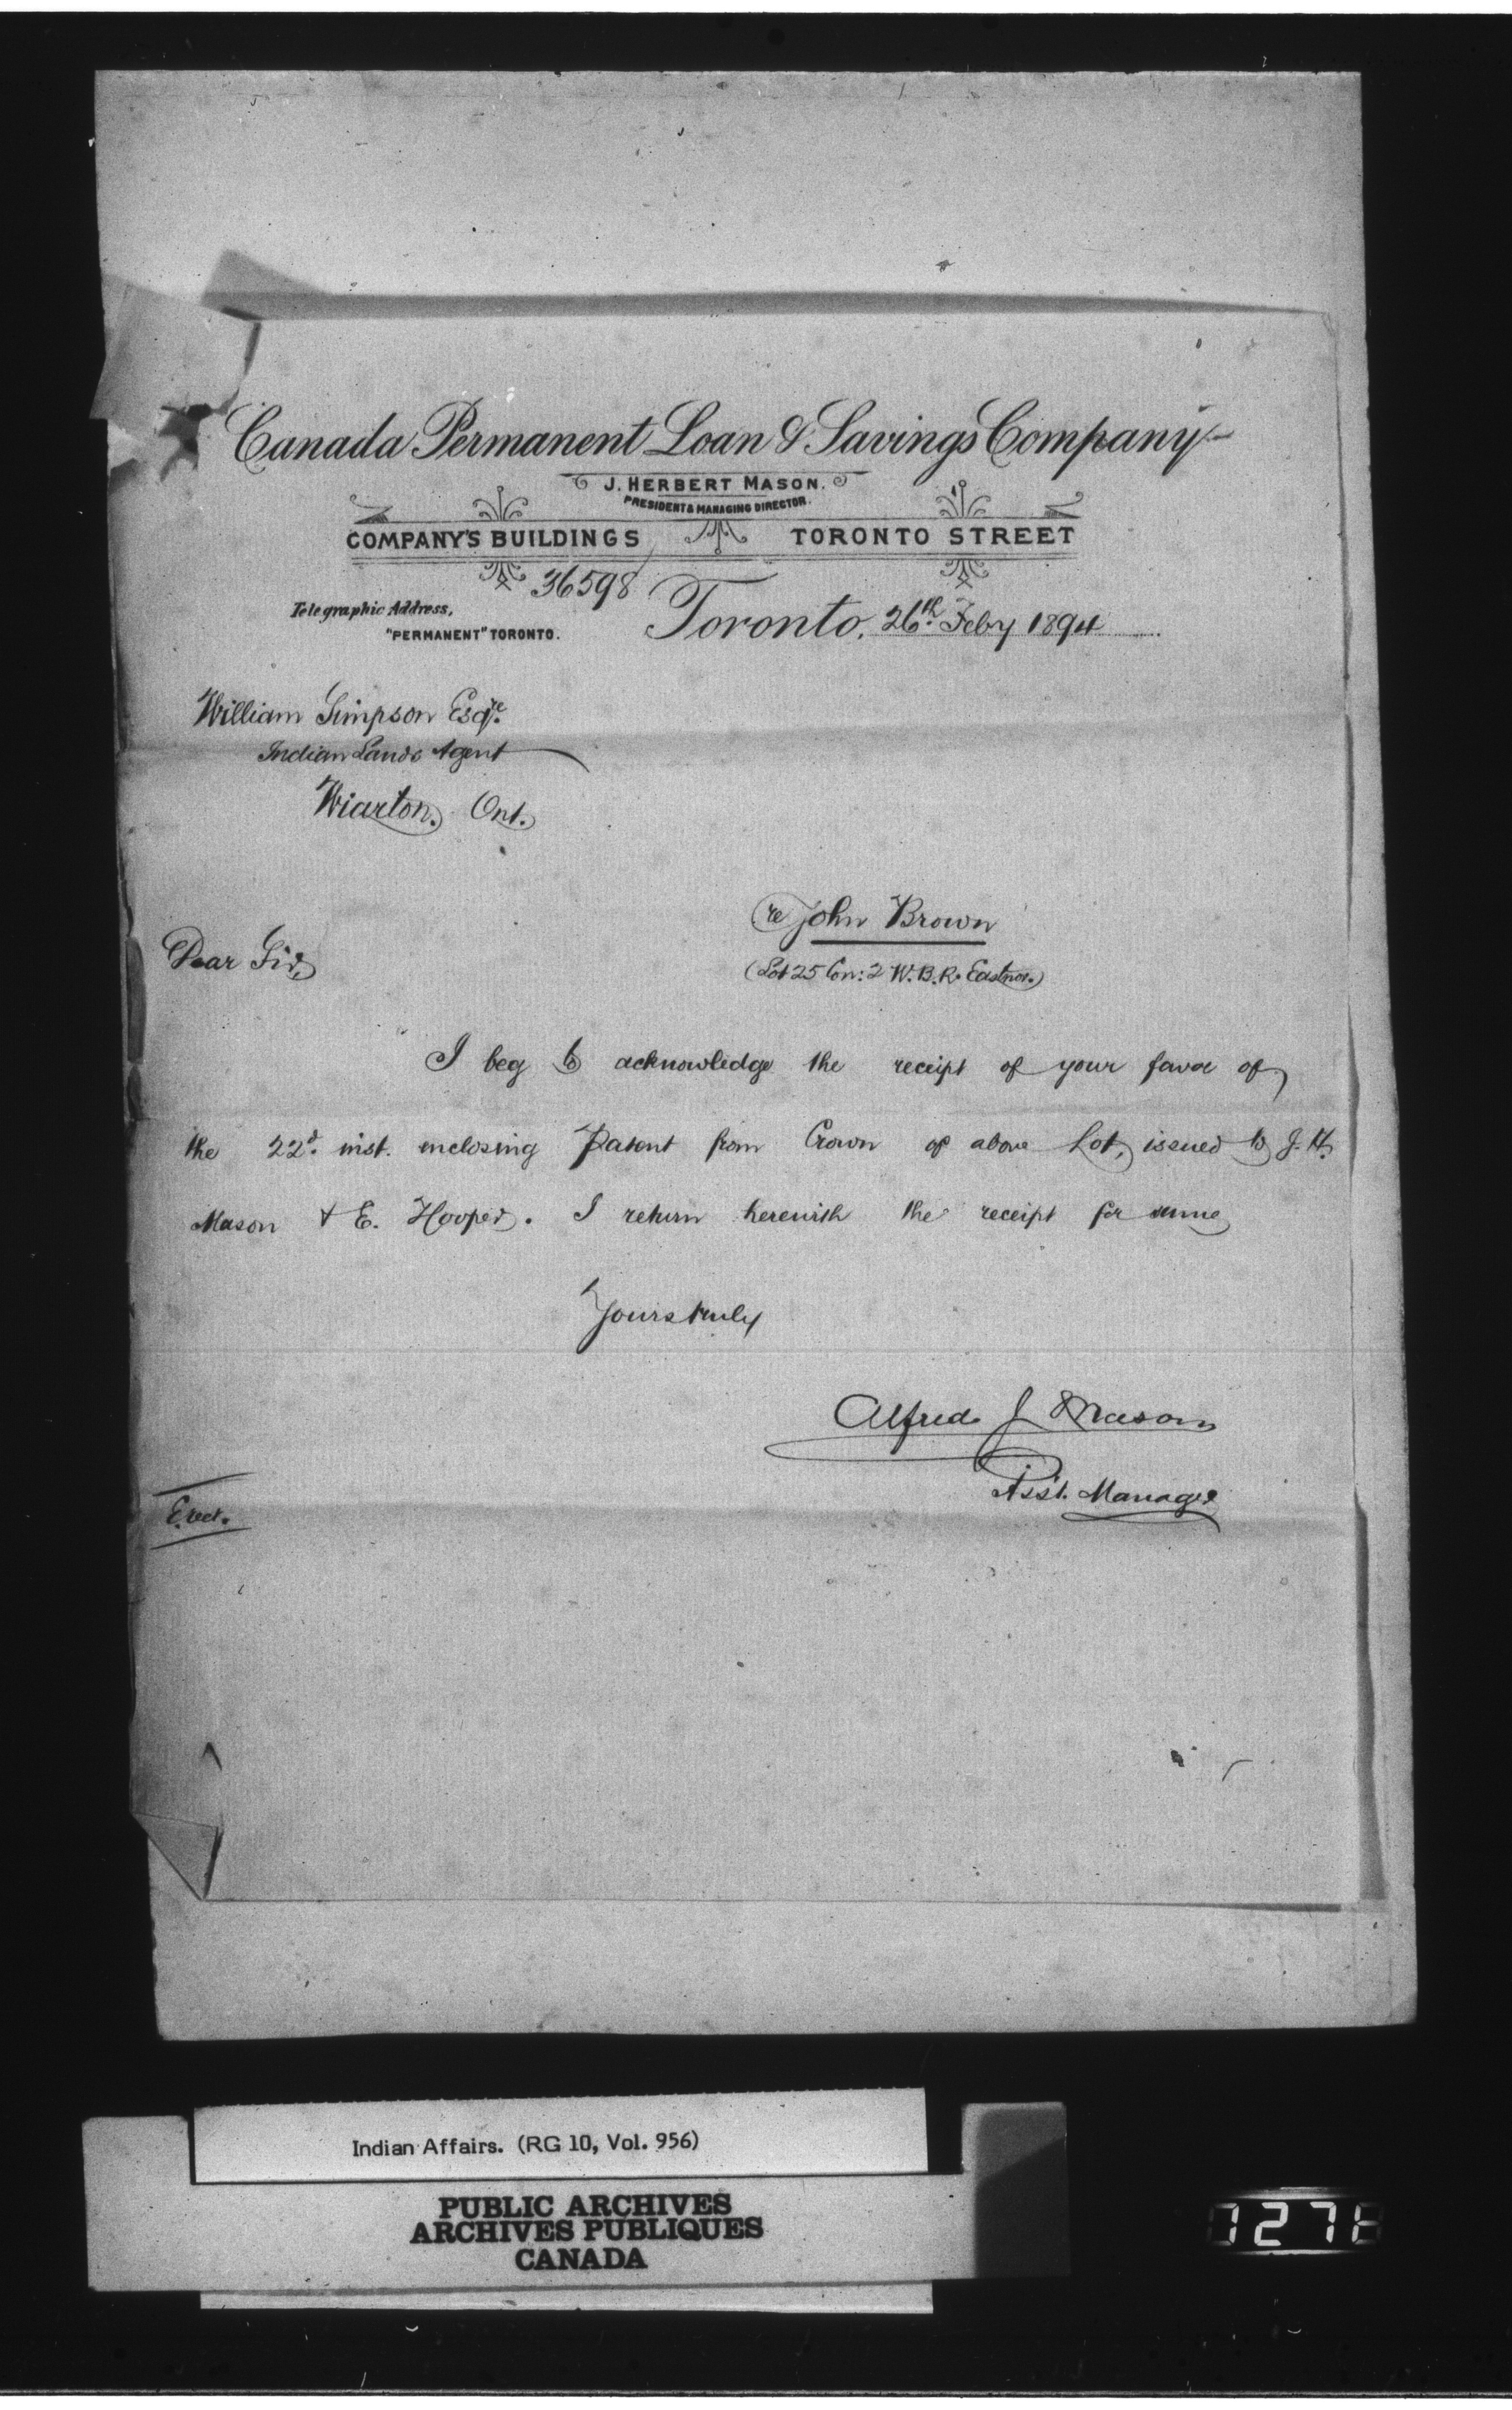 Canada Permanent Loan & Savings Company
J. HERBERT MASON.
PRESIDENT & MANAGING DIRECTOR.
COMPANY'S BUILDINGS TORONTO STREET
36598
Telegraphic Address,
"PERMANENT" TORONTO.
Toronto, 26th. Feby 1894
William Simpson Esqre.
Indian Lands Agent
Wiarton. Ont.
re John Brown
Dear Sir,
(Lot 25 Con: 2 W.B.R. Eastnor.)
I beg to acknowledge the receipt of your favor of
the 22d. inst. enclosing Patent from Crown of above Lot, issued to J. H.
Mason & E. Hooper. I return herewith the receipt for same
Yours truly
Alfred J Mason
Ass't. Manager
Indian Affairs. (RG 10, Vol. 956)
PUBLIC ARCHIVES
ARCHIVES PUBLIQUES
CANADA